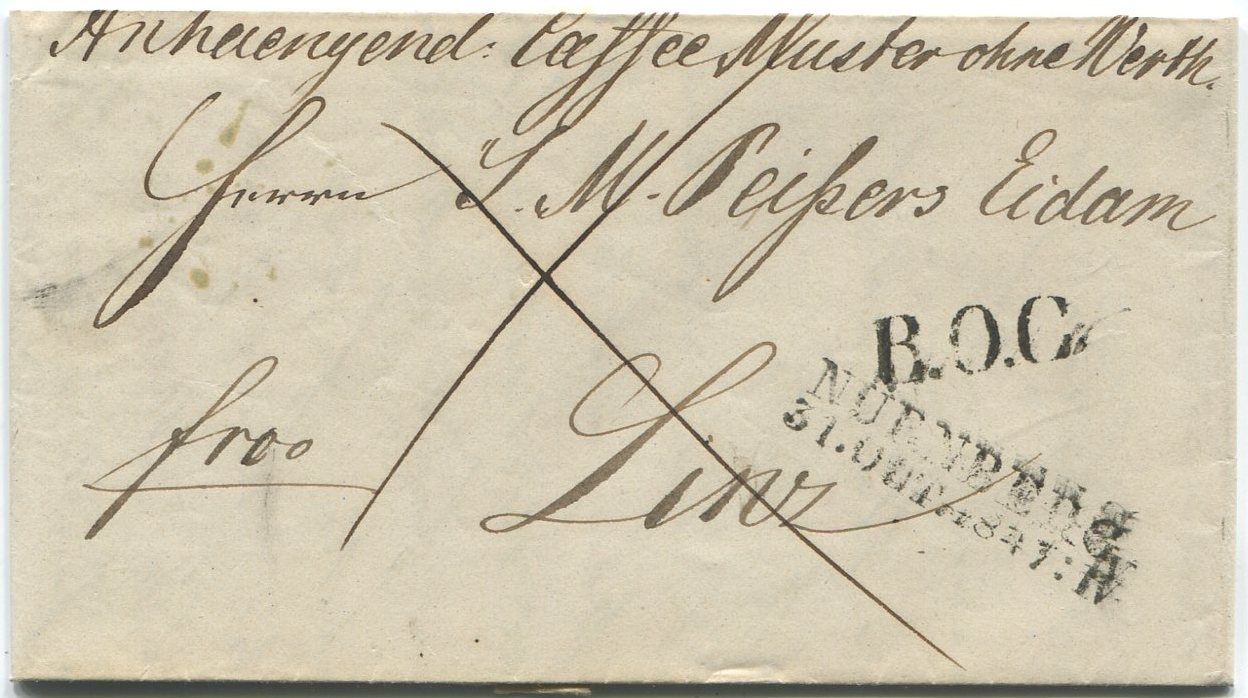 Anhaengend: Caffee Muster ohne Werth.
Herrn S. M. Peißers Eidam
R.O.C.
NUERNBERG
31.OCT.1847: IV
fr̲o̲o̲
Linz